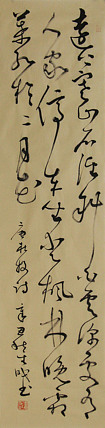 远上寒山石径斜白云深处有
人家停车坐爱枫林晚霜
叶红於二月花
唐杜牧诗 辛丑